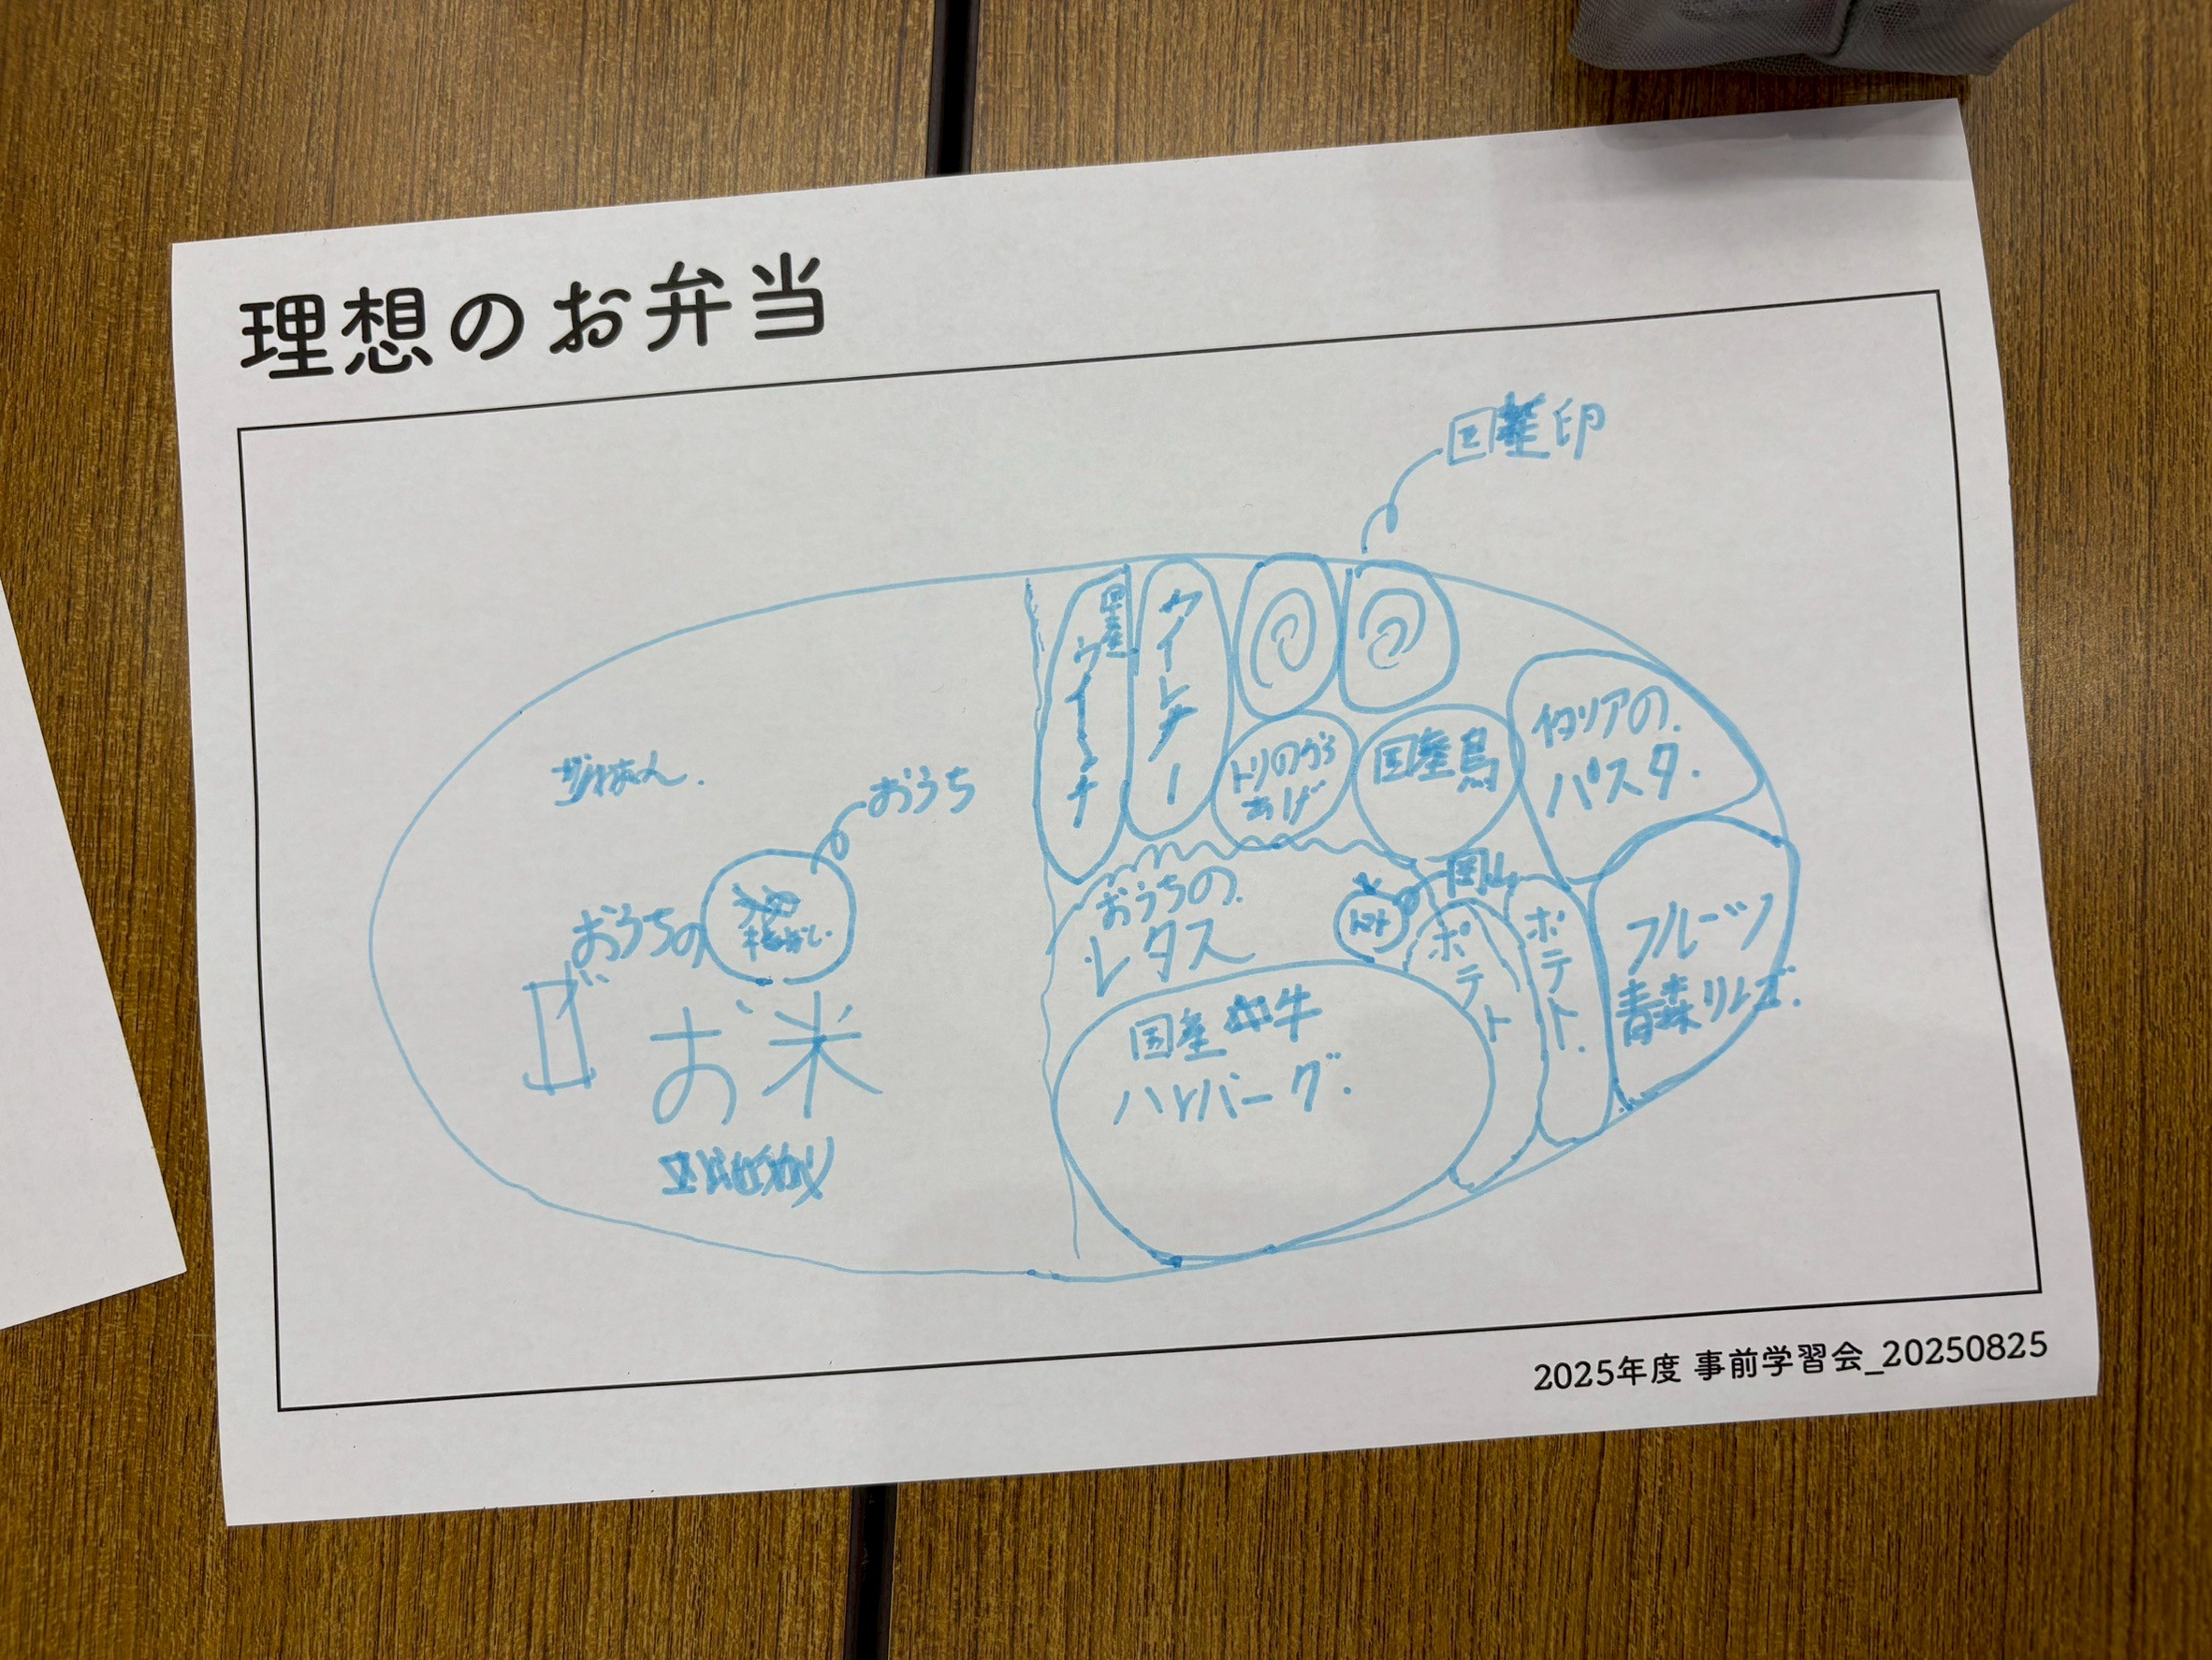 理想のお弁当
国産卵
ウインナー
トリのから
あげ
国産鳥
イタリアの
パスタ
おうち
おうちの
お米
おうちの
レタス
トマト
岡山
ポテト
ポテト
フルーツ
青森リンゴ
国産牛
ハンバーグ
2025年度 事前学習会_20250825